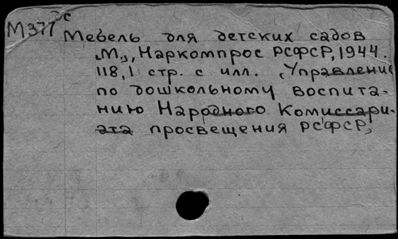 М377 с
Мебель для детских садов
М., Наркомпрос РСФСР, 1944.
118,1 стр. с илл. (Управление
по дошкольному воспита-
нию Народного Комиссари-
ата просвещения РСФСР)